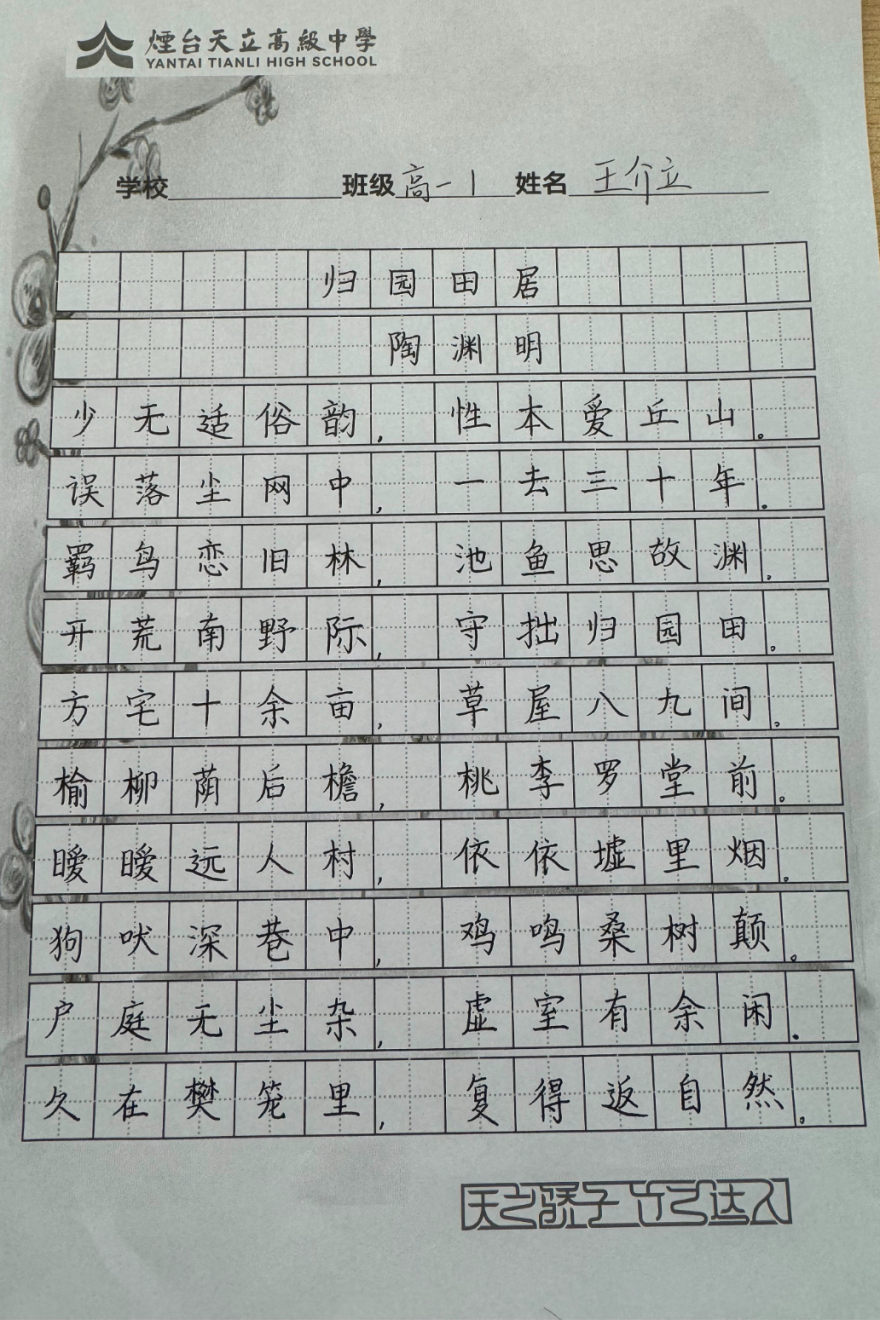 煙台天立高級中學
YANTAI TIANLI HIGH SCHOOL
学校 班级 高一1 姓名 王介立
归园田居
陶渊明
少无适俗韵，性本爱丘山。
误落尘网中，一去三十年。
羁鸟恋旧林，池鱼思故渊。
开荒南野际，守拙归园田。
方宅十余亩，草屋八九间。
榆柳荫后檐，桃李罗堂前。
暧暧远人村，依依墟里烟。
狗吠深巷中，鸡鸣桑树颠。
户庭无尘杂，虚室有余闲。
久在樊笼里，复得返自然。
天之骄子 立己达人